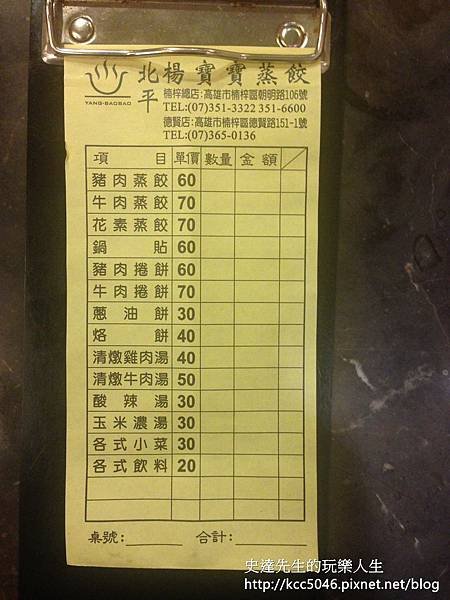 北平楊寶寶蒸餃
YANG-BAOBAO
楠梓總店:高雄市楠梓區朝明路106號
TEL:(07)351-3322 351-6600
德賢店:高雄市楠梓區德賢路151-1號
TEL:(07)365-0136
項 目 單價 數量 金額
豬肉蒸餃 60
牛肉蒸餃 70
花素蒸餃 70
鍋貼 60
豬肉捲餅 60
牛肉捲餅 70
蔥油餅 30
烙餅 40
清燉雞肉湯 40
清燉牛肉湯 50
酸辣湯 30
玉米濃湯 30
各式小菜 30
各式飲料 20
桌號:______ 合計:________
史達先生的玩樂人生
http://kcc5046.pixnet.net/blog